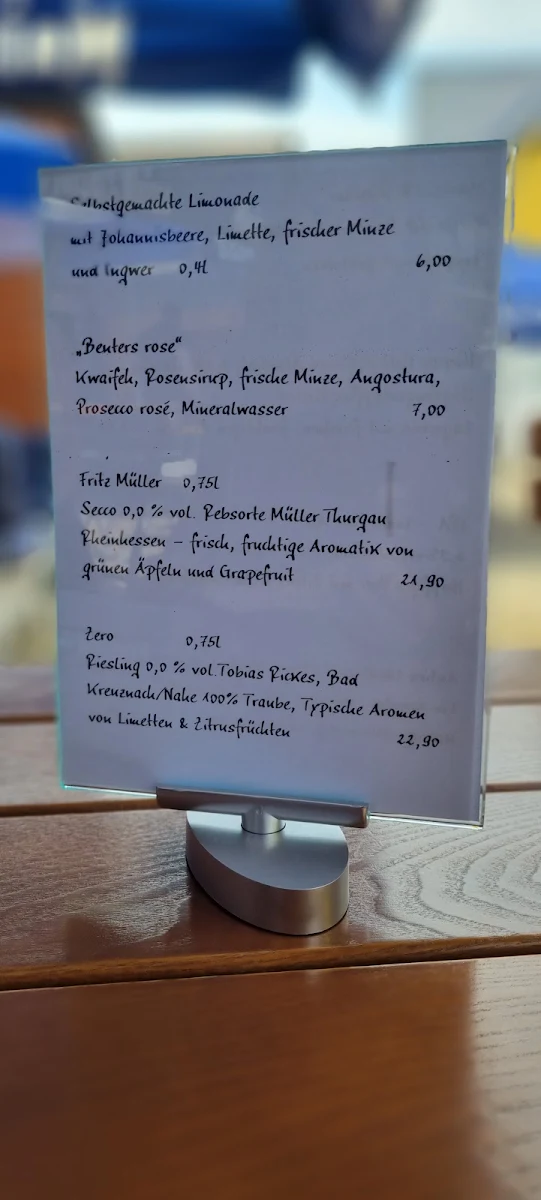 Selbstgemachte Limonade
mit Johannisbeere, Limette, frischer Minze
und Ingwer 0,4l 6,00
„Beuters rose“
Kwaifeh, Rosensirup, frische Minze, Angostura,
Prosecco rosé, Mineralwasser 7,00
Fritz Müller 0,75l
Secco 0,0 % vol. Rebsorte Müller Thurgau
Rheinhessen – frisch, fruchtige Aromatik von
grünen Äpfeln und Grapefruit 21,90
Zero 0,75l
Riesling 0,0 % vol.Tobias Rickes, Bad
Kreuznach/Nahe 100% Traube, Typische Aromen
von Limetten & Zitrusfrüchten 22,90